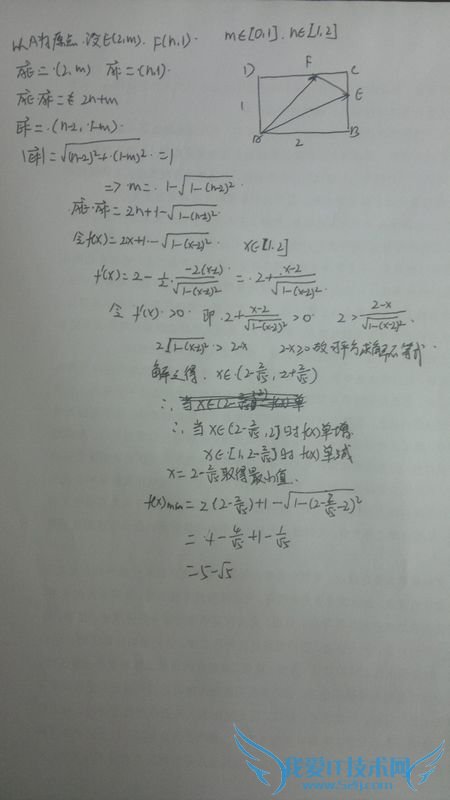 以A为原点. 设E(2,m). F(n,1). m∈[0,1]. n∈[1,2]
AE=(2,m) AF=(n,1).
AE·AF= 2n+m
EF=(n-2, 1-m).
|EF|=√((n-2)²+(1-m)²)=1
=> m=1-√(1-(n-2)²)
AE·AF=2n+1-√(1-(n-2)²)
令f(x)=2x+1-√(1-(x-2)²) x∈[1,2]
f'(x)=2-½·(-2(x-2))/√(1-(x-2)²)=2+(x-2)/√(1-(x-2)²).
令 f'(x)>0 即 2+(x-2)/√(1-(x-2)²)>0 2>(2-x)/√(1-(x-2)²).
2√(1-(x-2)²)>2-x 2-x≥0 故可平方求解不等式.
解之得. x∈(2-2/√5, 2+2/√5)
∴ 当x∈(2-2/√5,2]时f(x)单增
x∈[1,2-2/√5]时f(x)单减
x=2-2/√5取得最小值.
f(x)min=2(2-2/√5)+1-√(1-(2-2/√5-2)²)
=4-4/√5+1-1/√5
=5-√5
D F C
1 E
A 2 B
我爱IT技术网